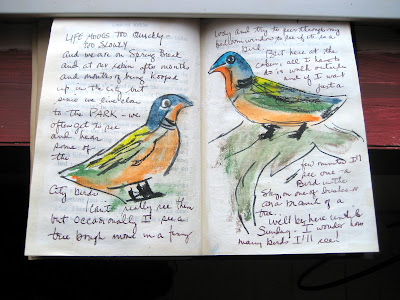 LIFE MOVES TOO Quickly
too Slowly
and we are on Spring Break
and at our cabin after months
and months of being cooped
up in the City but
since we live close
to the PARK - we
often get to see
and hear
some of
the
City Birds
I can't really see them
but occasionally I see a
tree bough move in a funny
way and try to see through my
balcony window to see if it is a
bird.
But here at the
cabin, all I have to
do is walk outside
and if I wait
just a
few minutes I'll
see one - a
Bird in the
Sky, on one of bushes or
on a branch of a
tree.
We'll be here until
Sunday - I wonder how
many birds I'll see?